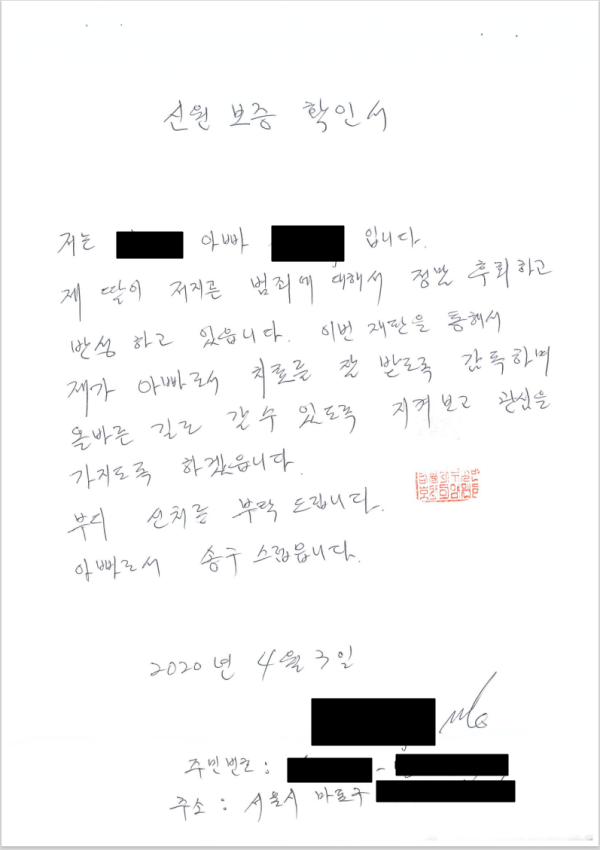 신원 보증 확인서
저는 아빠 입니다.
제 딸이 저지른 범죄에 대해서 정말 후회하고
반성 하고 있습니다. 이번 재판을 통해서
제가 아빠로서 치료를 잘 받도록 감독하며
올바른 길로 갈 수 있도록 지켜보고 관심을
가지도록 하겠습니다.
부디 선처를 부탁 드립니다.
아빠로서 송구 스럽습니다.
2020년 4월 3일
주민번호 : -
주소 : 서울시 마포구